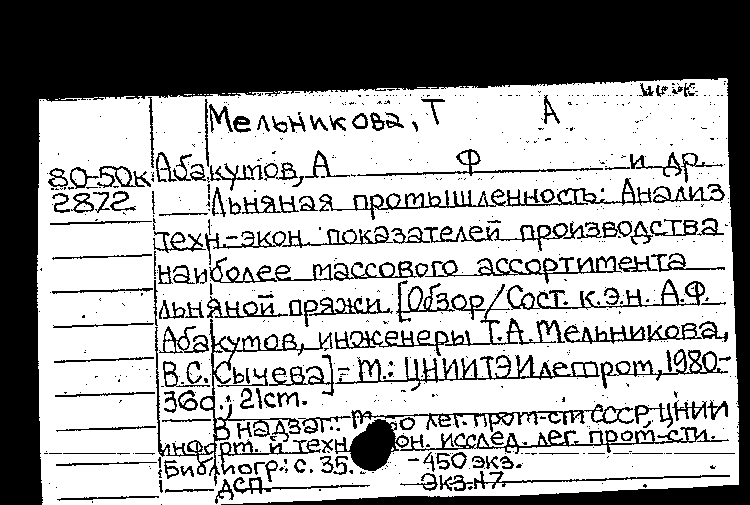 Мельникова, Т А
80-50к Абакутов, А Ф и др.
2872 Льняная промышленность: Анализ
техн.-экон. показателей производства
наиболее массового ассортимента
льняной пряжи. [Обзор/Сост. к.э.н. А.Ф.
Абакутов, инженеры Т.А. Мельникова,
В.С. Сычева].- М.: ЦНИИТЭИлегпром, 1980.-
36с.; 21см.
В надзаг.: М-во лег. пром-сти СССР, ЦНИИ
информ. и техн. экон. исслед. лег. пром-сти.
Библиогр.: с. 35. -450 экз.
ДСП. Экз.№7.